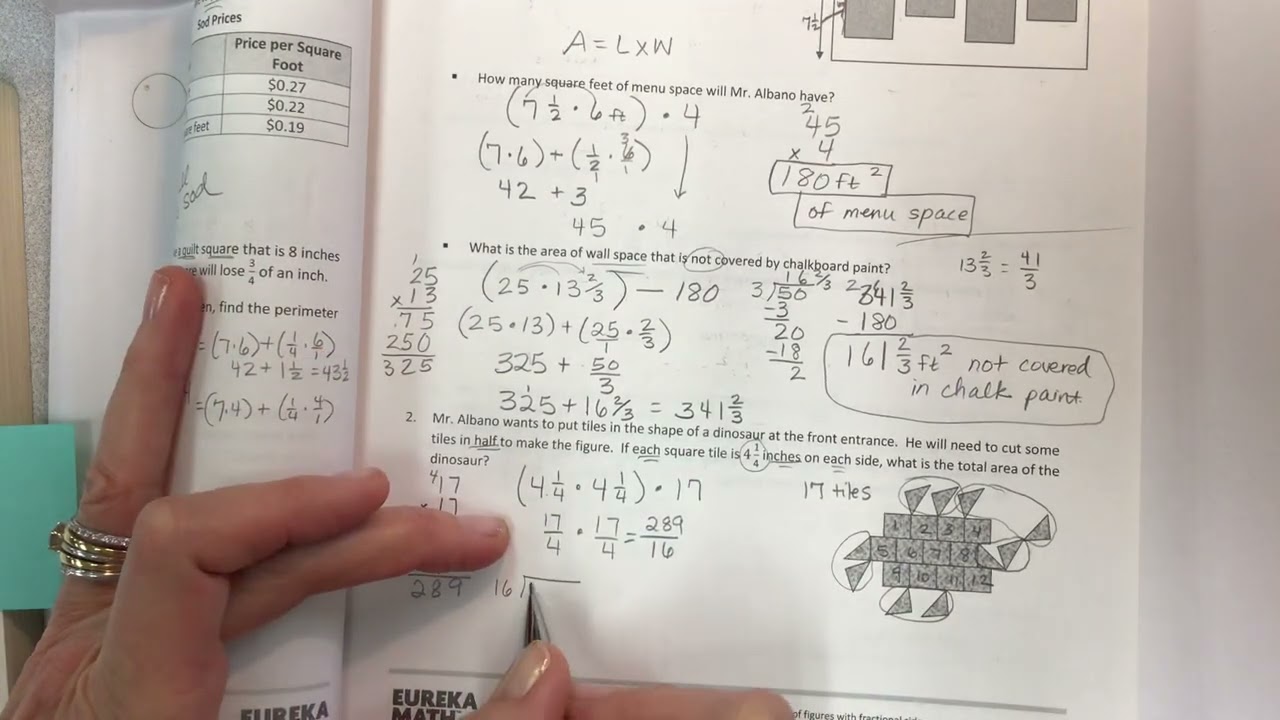 Sod Prices
Price per Square
Foot
$0.27
$0.22
feet $0.19
sod
quilt square that is 8 inches
will lose 3/4 of an inch.
find the perimeter
= (7·6)+(1/4·6/1)
42+1 1/2=43 1/2
=(7·4)+(1/4·4/1)
7 1/2
A = L x W
How many square feet of menu space will Mr. Albano have?
(7 1/2 · 6 ft) · 4
(7·6)+(1/2·6/1)
3
1
42 + 3
45 · 4
2
45
x 4
180 ft²
of menu space
What is the area of wall space that is not covered by chalkboard paint?
13 2/3 = 41/3
1
25
x13
75
250
325
(25 · 13 2/3) — 180
(25·13)+(25/1·2/3)
325 + 50/3
1
325+16 2/3 = 341 2/3
16 2/3
3)50
-3
20
-18
2
341 2/3
- 180
161 2/3 ft² not covered
in chalk paint.
2. Mr. Albano wants to put tiles in the shape of a dinosaur at the front entrance. He will need to cut some
tiles in half to make the figure. If each square tile is 4 1/4 inches on each side, what is the total area of the
dinosaur?
4
17
17
289
(4 1/4 · 4 1/4) · 17
17/4 · 17/4 = 289/16
16)
17 tiles
1 2 3 4
5 6 7 8
9 10 11 12
EUREKA
MATH
EUREKA
of figures with fractional